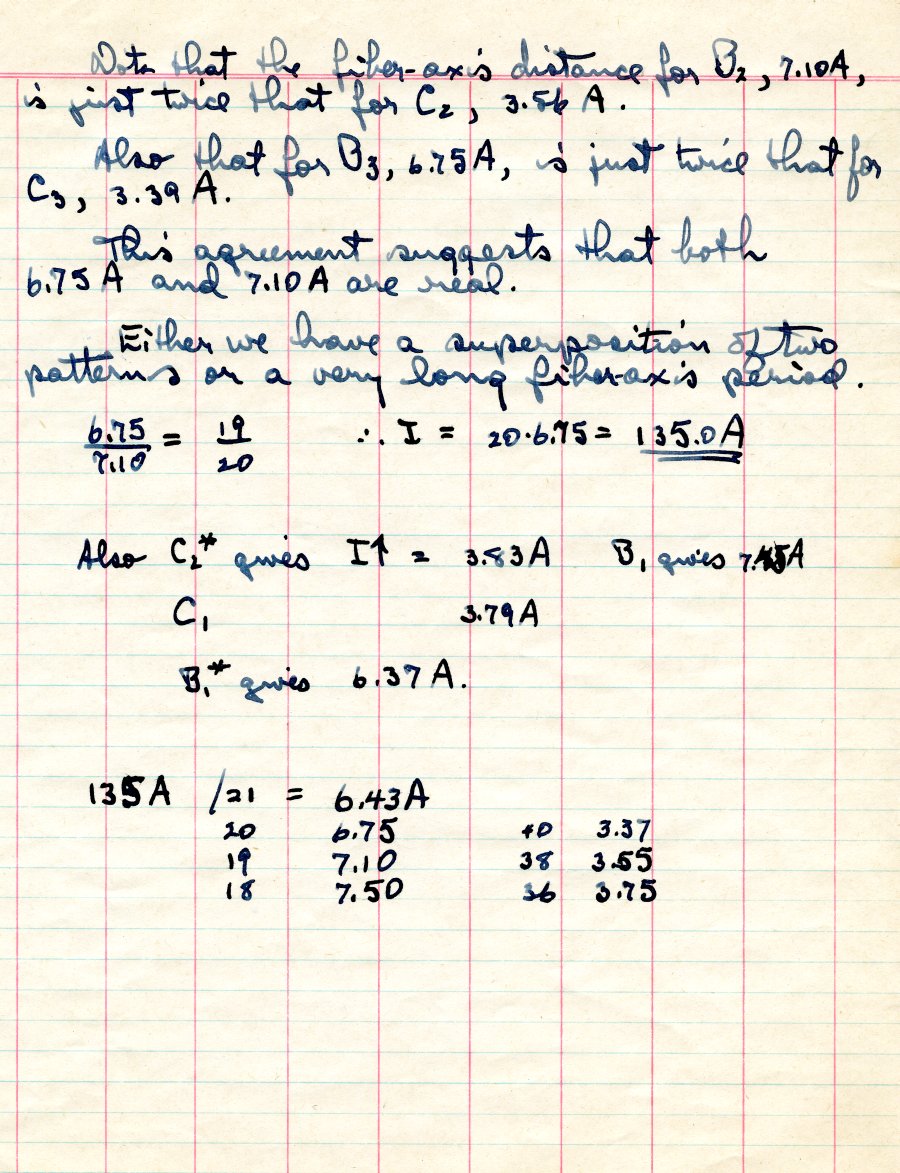 Note that the fiber-axis distance for B₂, 7.10A,
is just twice that for C₂, 3.56 A.
Also that for B₃, 6.75A, is just twice that for
C₃, 3.39 A.
This agreement suggests that both
6.75 A and 7.10 A are real.
Either we have a superposition of two
patterns or a very long fiber-axis period.
6.75/7.10 = 19/20 ∴ I = 20·6.75 = 135.0 A
Also C₂* gives I↑ = 3.83A B₁ gives A
C₁ 3.79A
B₁* gives 6.37 A.
135A /21 = 6.43A
20 6.75 40 3.37
19 7.10 38 3.55
18 7.50 36 3.75